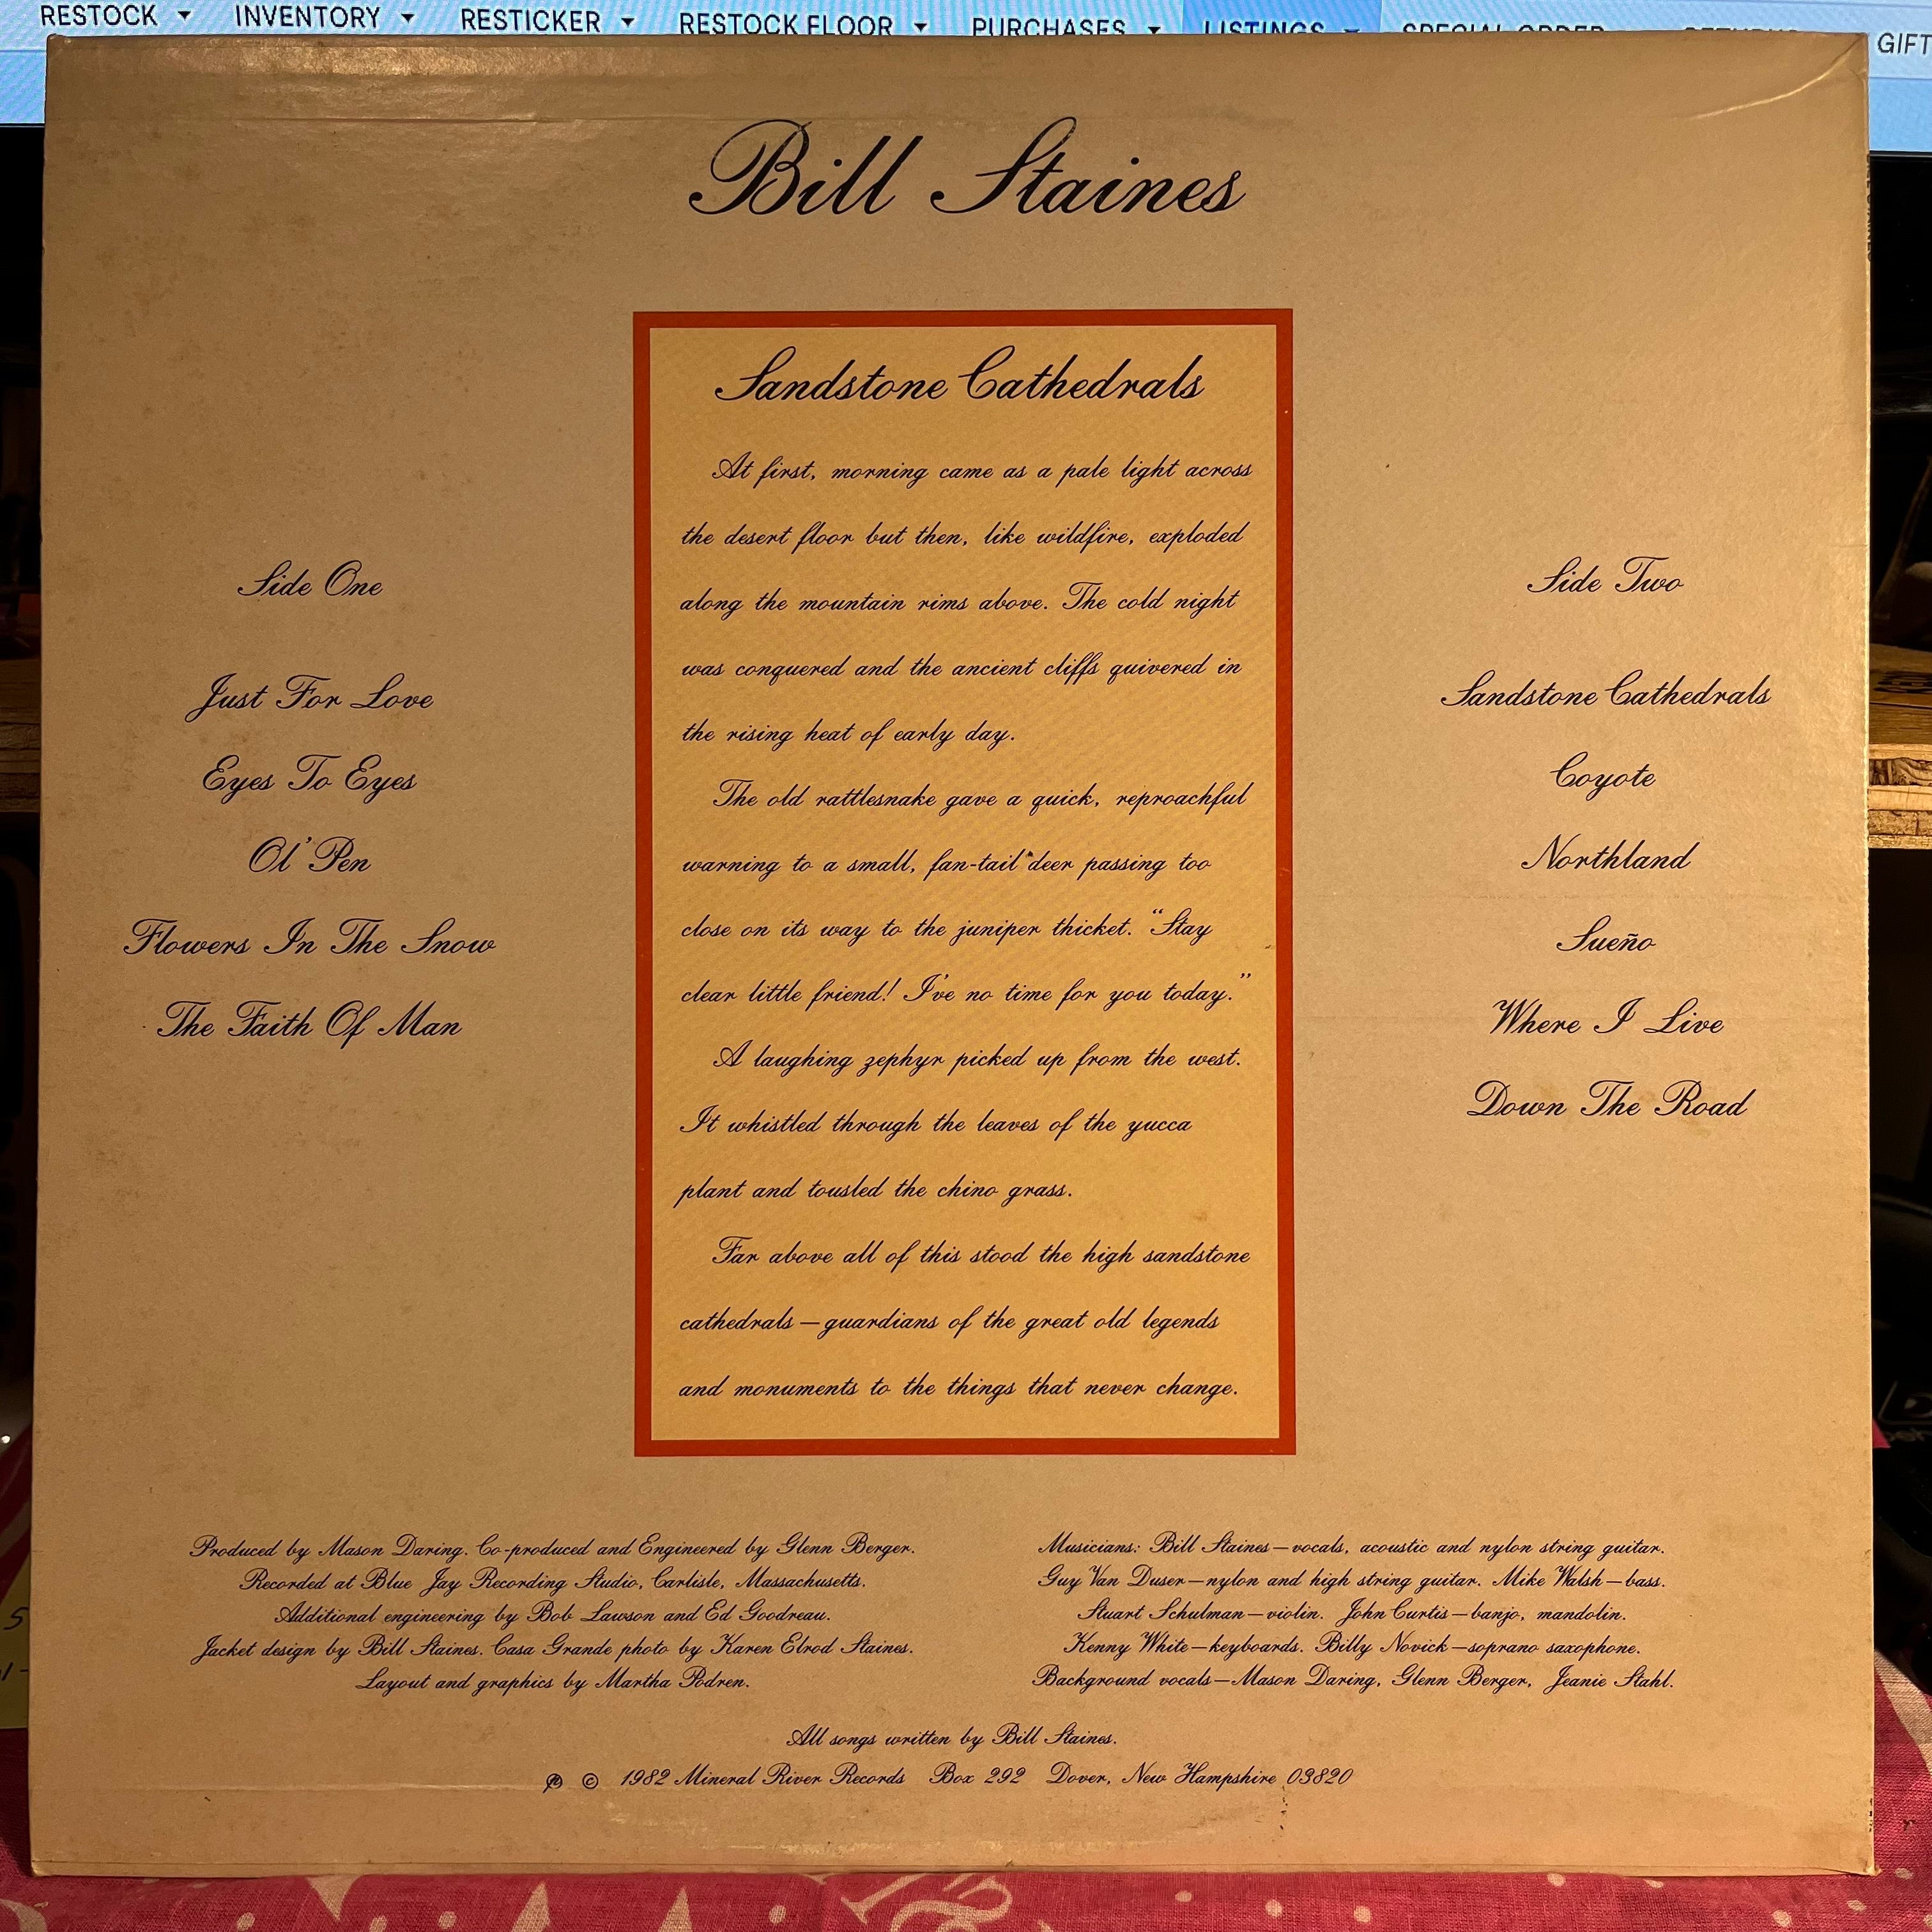 RESTOCK INVENTORY RESTICKER RESTOCK FLOOR PURCHASES LISTINGS SPECIAL ORDER RETURNS GIFT
Bill Staines
Sandstone Cathedrals
At first, morning came as a pale light across
the desert floor but then, like wildfire, exploded
along the mountain rims above. The cold night
was conquered and the ancient cliffs quivered in
the rising heat of early day.
The old rattlesnake gave a quick, reproachful
warning to a small, fan-tail deer passing too
close on its way to the juniper thicket. “Stay
clear little friend! I've no time for you today.”
A laughing zephyr picked up from the west.
It whistled through the leaves of the yucca
plant and tousled the chino grass.
Far above all of this stood the high sandstone
cathedrals—guardians of the great old legends
and monuments to the things that never change.
Side One
Just For Love
Eyes To Eyes
Ol' Pen
Flowers In The Snow
The Faith Of Man
Side Two
Sandstone Cathedrals
Coyote
Northland
Sueño
Where I Live
Down The Road
Produced by Mason Daring. Co-produced and Engineered by Glenn Berger.
Recorded at Blue Jay Recording Studio, Carlisle, Massachusetts.
Additional engineering by Bob Lawson and Ed Goodreau.
Jacket design by Bill Staines. Casa Grande photo by Karen Elrod Staines.
Layout and graphics by Martha Podren.
Musicians: Bill Staines—vocals, acoustic and nylon string guitar.
Guy Van Duser—nylon and high string guitar. Mike Walsh—bass.
Stuart Schulman—violin. John Curtis—banjo, mandolin.
Kenny White—keyboards. Billy Novick—soprano saxophone.
Background vocals—Mason Daring, Glenn Berger, Jeanie Stahl.
All songs written by Bill Staines.
℗ © 1982 Mineral River Records Box 292 Dover, New Hampshire 03820